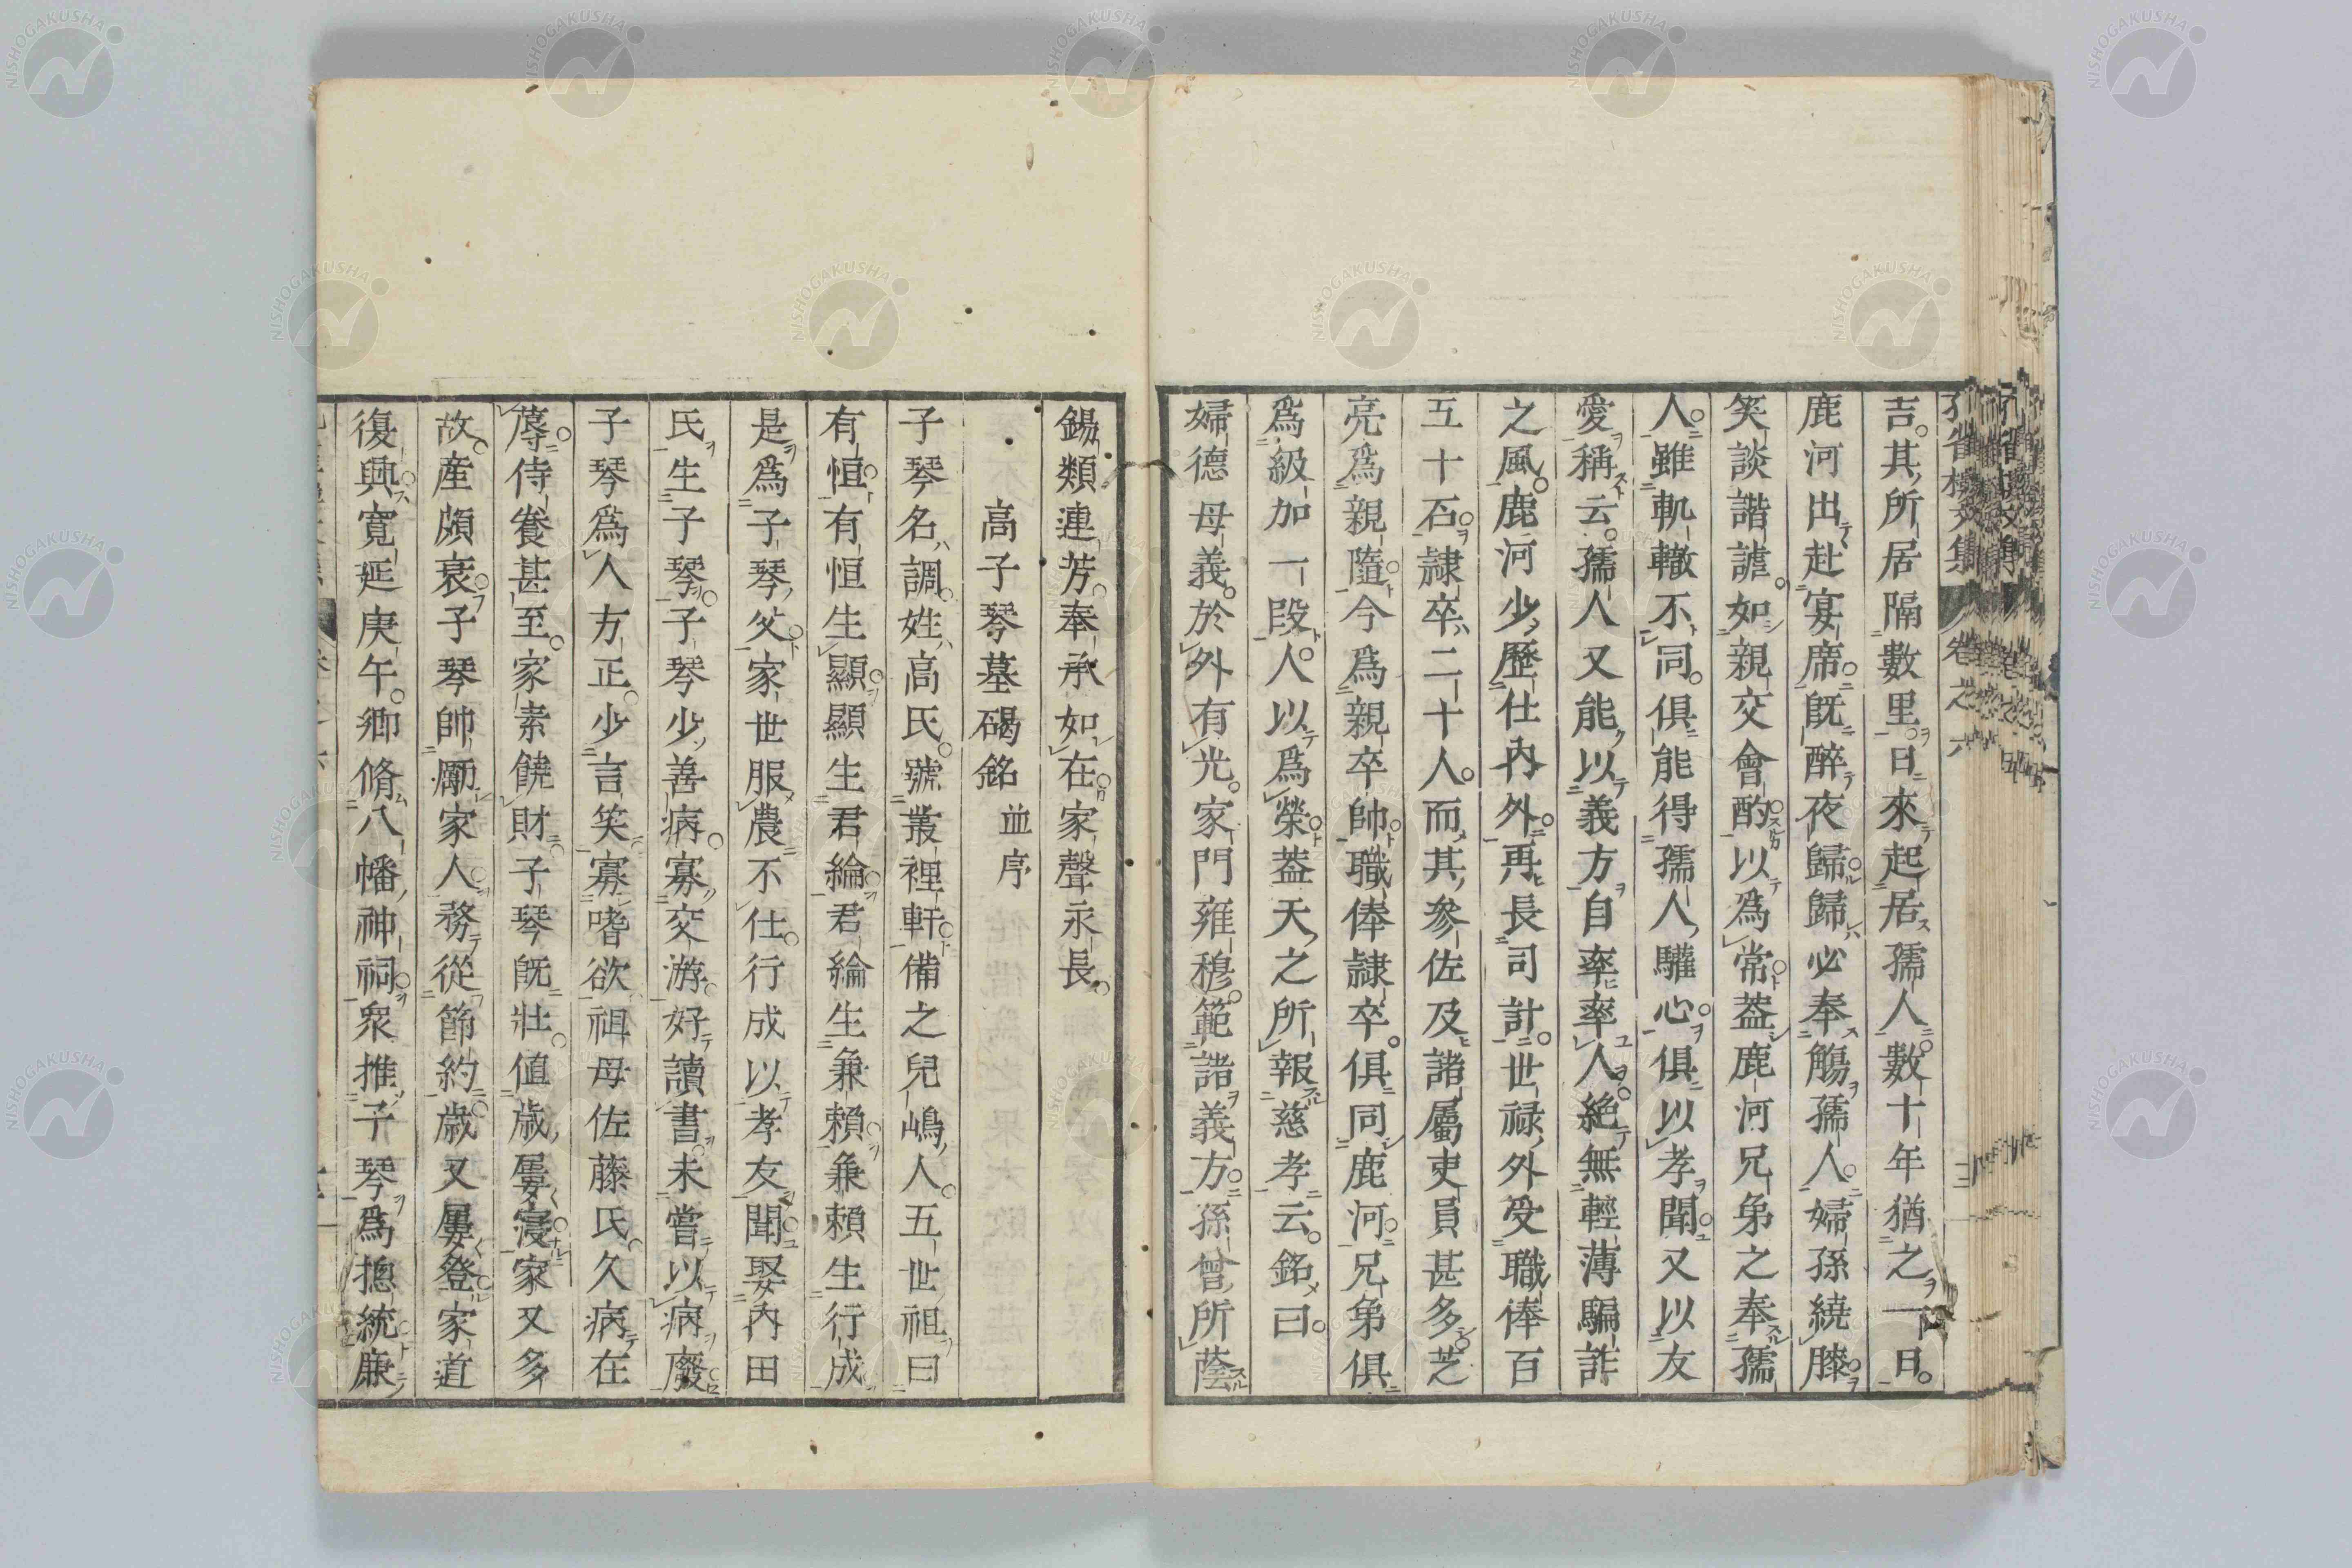 吉其所居隔數里日來起居孺人數十年猶之一日
鹿河出赴宴席既醉夜歸歸必奉觴孺人婦孫繞膝
笑談諧謔如親交會酌以爲常蓋鹿河兄弟之奉孺
人雖軌轍不同俱能得孺人驩心俱以孝聞又以友
愛稱云孺人又能以義方自率率人絶無輕薄騙詐
之風鹿河少歷仕内外再長司計世禄外受職俸百
五十石隷卒二十人而其參佐及諸屬吏員甚多芝
亮爲親隨今爲親卒帥職俸隷卒俱同鹿河兄弟俱
爲級加一段人以爲榮蓋天之所報慈孝云銘曰
婦德母義於外有光家門雍穆範諸義方孫曾所蔭
錫類連芳奉承如在家聲永長
高子琴墓碣銘 並序
子琴名調姓高氏號叢裡軒備之兒嶋人五世祖曰
有恒有恒生顯顯生君綸君綸生兼賴兼賴生行成
是爲子琴父家世服農不仕行成以孝友聞娶内田
氏生子琴子琴少善病寡交游好讀書未嘗以病廢
子琴爲人方正少言笑寡嗜欲祖母佐藤氏久病在
蓐侍養甚至家素饒財子琴既壯値歳屢寖家又多
故産頗衰子琴帥勵家人務從節約歳又屢登家道
復興寛延庚午郷脩八幡神祠衆推子琴爲摠統廉
卷之六